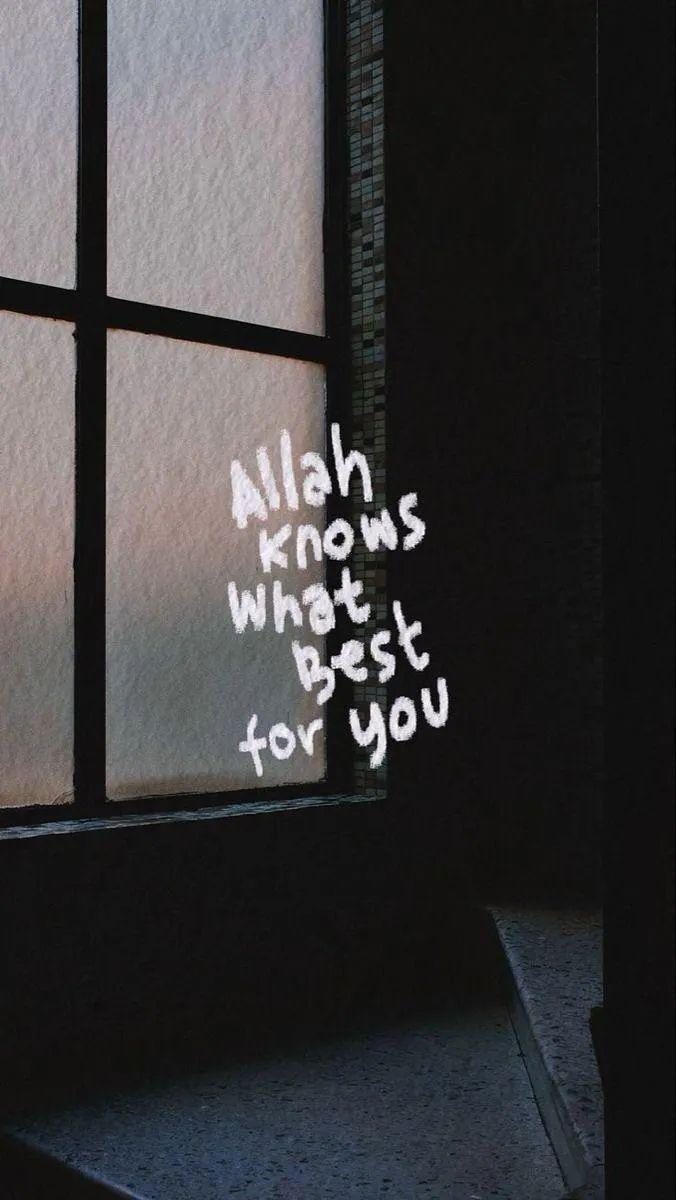 Allah
knows
What
Best
for you